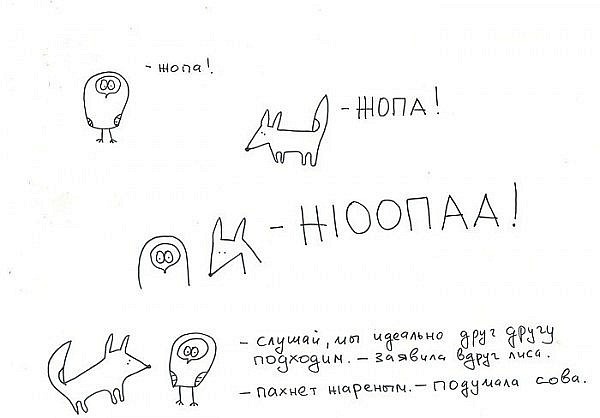 - жопа!
- ЖОПА!
- ЖЮОПАА!
- слушай, мы идеально друг другу
подходим. - заявила вдруг лиса.
- пахнет жареным. - подумала сова.